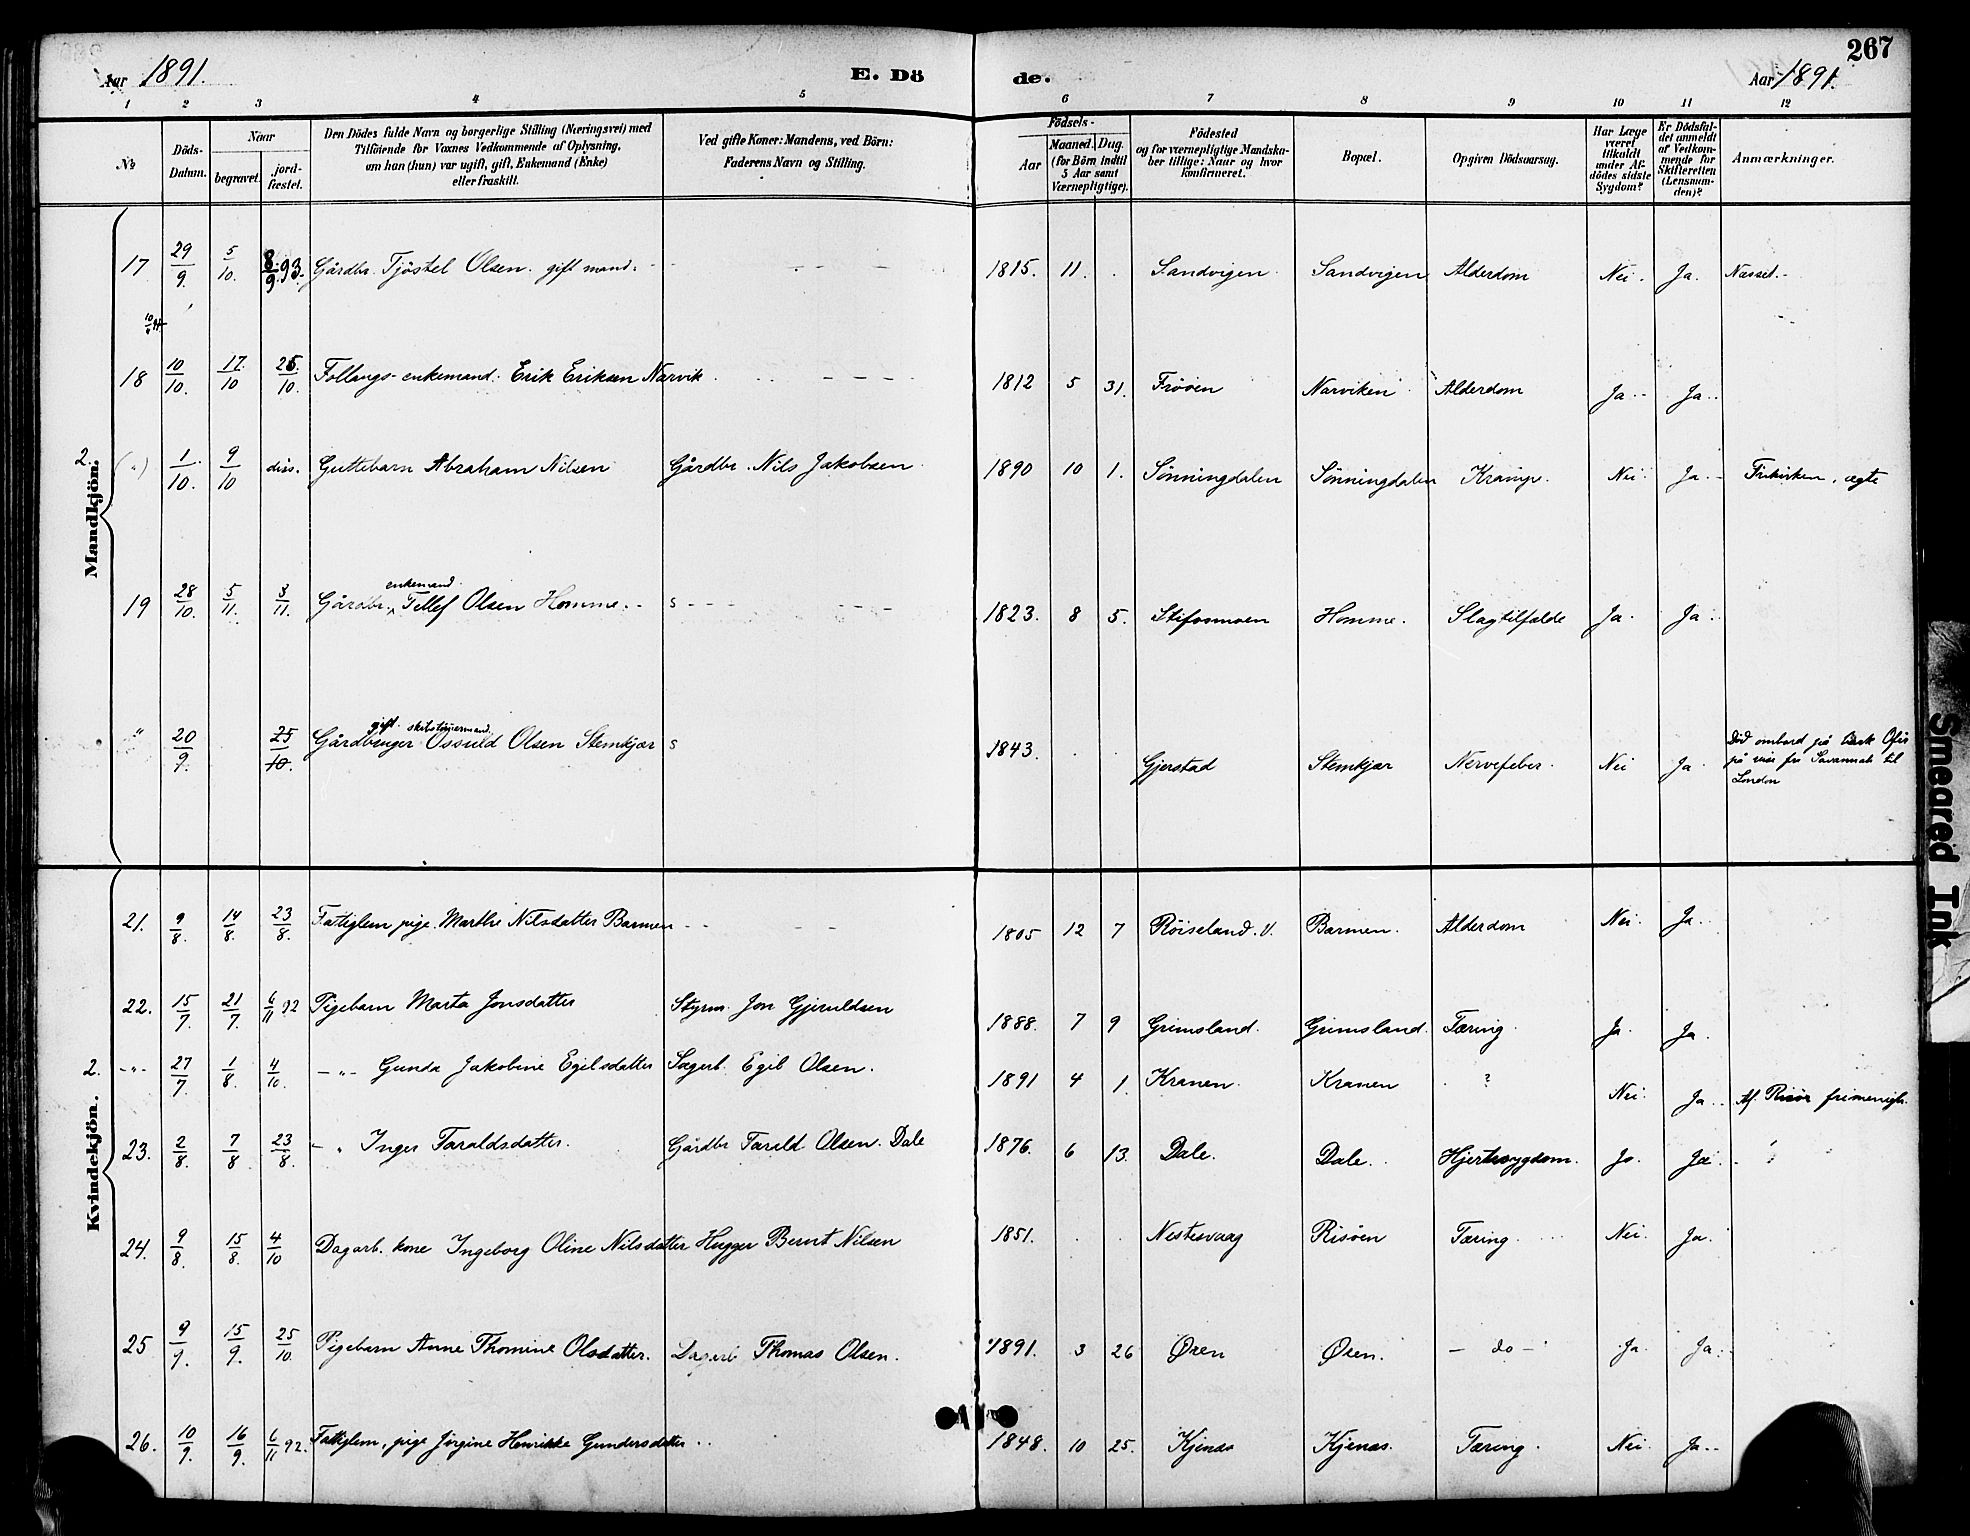 267
Aar 1891. E. Dö de. Aar 1891.
1 2 3 4 5 6 7 8 9 10 11 12
№ Döds-Datum. Naar begravet. jordfæstet. Den Dödes fulde Navn og borgerlige Stilling (Næringsvei) med Tilföiende for Voxnes Vedkommende af Oplysning, om han (hun) var ugift, gift, Enkemand (Enke) eller fraskilt. Ved gifte Koner: Mandens, ved Börn: Faderens Navn og Stilling. Födsels- Aar Maaned. Dag. (for Börn indtil 5 Aar samt Værnepligtige). Födested og for værnepligtige Mandskaber tillige: Naar og hvor konfirmeret. Bopæl. Opgiven Dödsaarsag. Har Læge været tilkaldt under Afdödes sidste Sygdom? Er Dödsfaldet anmeldt af Vedkommende for Skifteretten (Lensmanden)? Anmærkninger.
Mandkjön.
17 29/9. 5/10. 8/9.93. Gårdbr. Tjöstel Olsen. gift mand. 1815. 11. Sandvigen. Sandvigen Alderdom Nei. Ja. Næsset.
18 10/10. 17/10 25/10. Follaugs-enkemand: Erik Eriksen Narvik. 1812 5 31. Frööen Narviken Alderdom Ja. Ja.
2. (") 1/10. 9/10 diss. Guttebarn Abraham Nilsen Gårdbr. Nils Jakobsen 1890 10 1. Sönningdalen Sönningdalen Krampe. Nei. Ja. Frikirken, ægte
19 28/10. 5/11. 3/11. Gårdbr. enkemand Tellef Olsen Homme. 1823. 8 5. Stifosmoen Homme. Slagtilfælde Ja. Ja.
" 20/9. 25/10. Gårdbruger gift Ossuld Olsen Stemkjær 1843. Gjerstad Stemkjær Nervefeber. Nei Ja Död ombord på Bark Ofir
på reise fra Savannah til
London
Kvindekjön.
21. 9/8. 14/8. 23/8. Fattiglem, pige. Marthe Nilsdatter Barmen 1805 12 7 Röiseland. V. Barmen. Alderdom Nei. Ja.
22. 15/7. 21/7. 6/11 92 Pigebarn Marta Jonsdatter Styrm. Jon Gjeruldsen 1888. 7 9 Grimsland. Grimsland. Tæring. Ja. Ja.
2. -"- 27/7 1/8. 4/10. -"- Gunda Jakobine Egilsdatter Sagarb. Egil Olsen. 1891 4 1. Kranen. Kranen ? Nei. Ja. Af Risör frimenigh.
23. 2/8. 7/8 23/8. - " Inger Taraldsdatter. Gårdbr Tarald Olsen. Dale 1876. 6 13. Dale. Dale. Hjertesygdom. Ja. Ja.
24. 9/8. 15/8. 4/10 Dagarb. kone Ingeborg Oline Nilsdatter Hugger Bernt Nilsen 1851. Nestesvaag Risöen Tæring. Nei. Ja.
25 9/9. 15/9. 25/10. Pigebarn Anne Thomine Olsdatter. Dagarb Thomas Olsen. 1891. 3 26 Öxen Öxen. - do - Ja. Ja.
26. 10/9. 16/9. 6/11 92. Fattiglem, pige Jörgine Henrikke Gundersdatter 1848. 10 25. Kjenas Kjenas. Tæring. Nei. Ja.
Smeared Ink